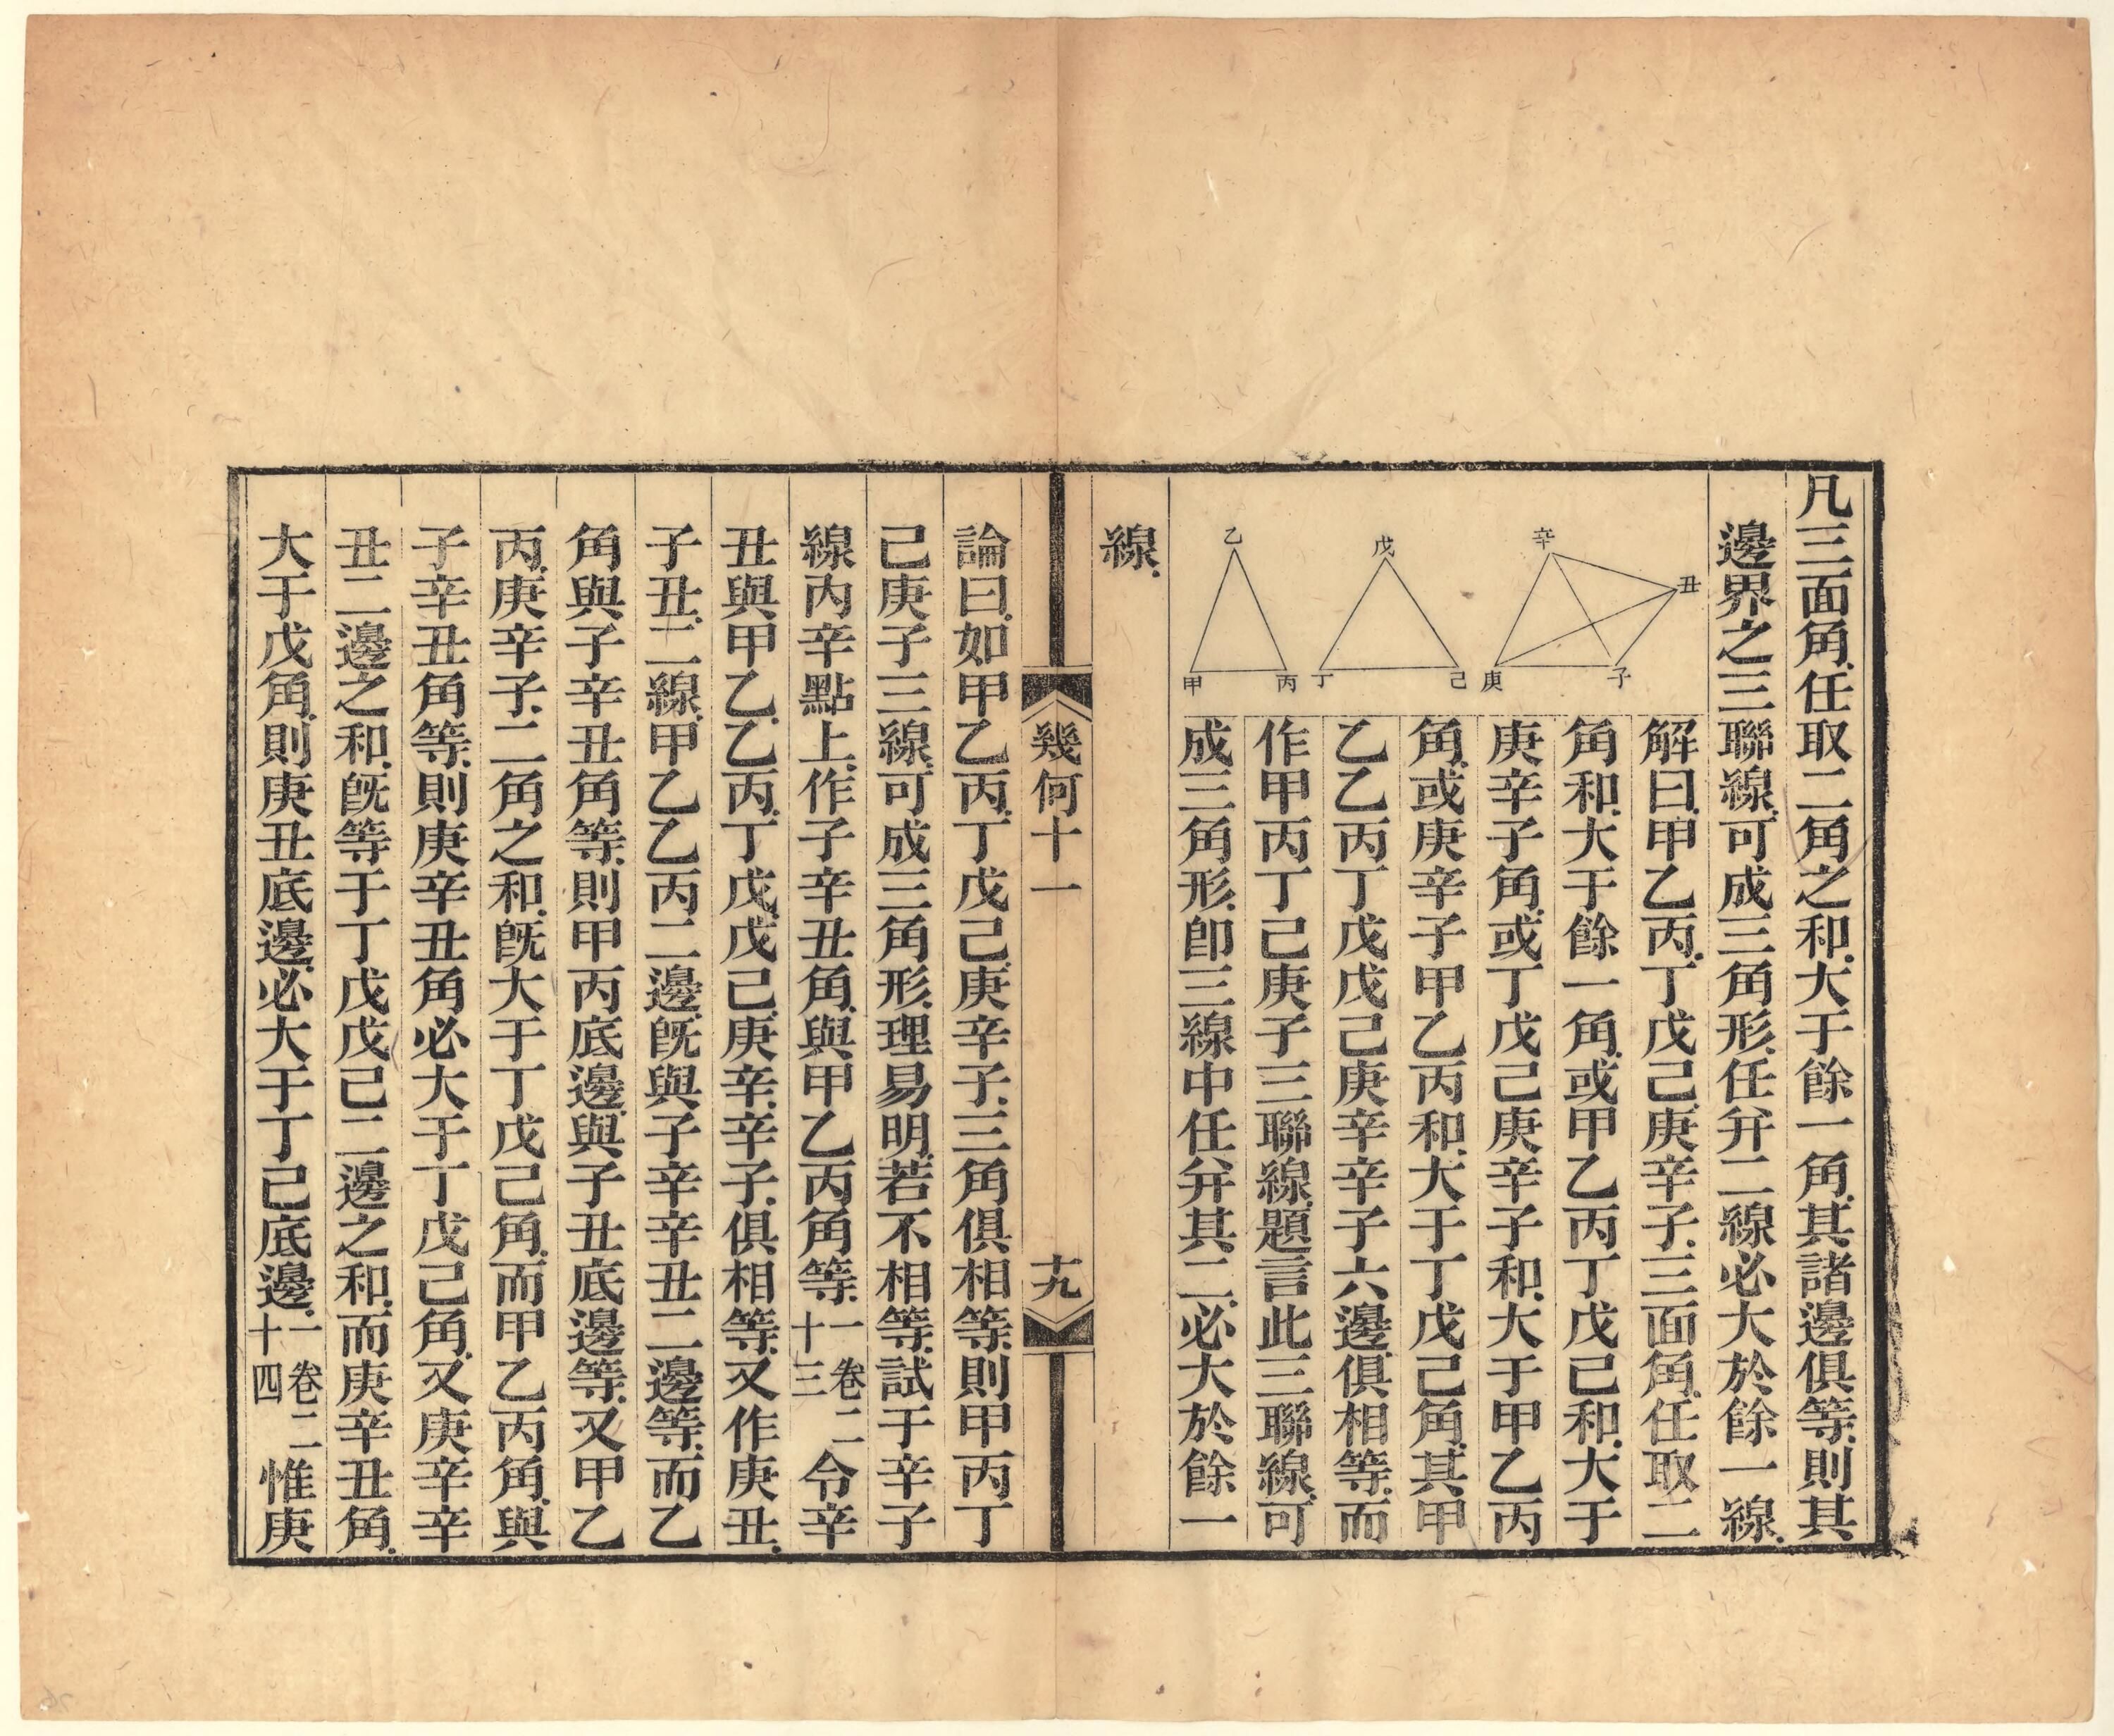 凡三面角.任取二角之和.大于餘一角.其諸邊俱等.則其
邊界之三聯線.可成三角形.任幷二線必大於餘一線.
乙
甲
丙
戊
丁
己
辛
丑
庚
子
解曰.甲乙丙.丁戊己.庚辛子.三面角.任取二
角和.大于餘一角.或甲乙丙丁戊己和.大于
庚辛子角.或丁戊己庚辛子和.大于甲乙丙
角.或庚辛子甲乙丙和.大于丁戊己角.其甲
乙乙丙丁戊戊己庚辛辛子六邊.俱相等.而
作甲丙丁己庚子三聯線.題言此三聯線.可
成三角形.卽三線中任幷其二.必大於餘一
線.
幾何十一
十九
論曰.如甲乙丙.丁戊己.庚辛子.三角俱相等.則甲丙丁
己庚子三線.可成三角形.理易明.若不相等.試于辛子
線內辛點上.作子辛丑角.與甲乙丙角等.一卷二十三令辛
丑與甲乙.乙丙.丁戊.戊己.庚辛.辛子.俱相等.又作庚丑.
子丑.二線.甲乙乙丙二邊.旣與子辛辛丑二邊等.而乙
角與子辛丑角等.則甲丙底邊.與子丑底邊等.又甲乙
丙.庚辛子.二角之和.旣大于丁戊己角.而甲乙丙角.與
子辛丑角等.則庚辛丑角必大于丁戊己角.又庚辛辛
丑二邊之和.旣等于丁戊戊己二邊之和.而庚辛丑角.
大于戊角.則庚丑底邊.必大于丁己底邊.一卷二十四惟庚